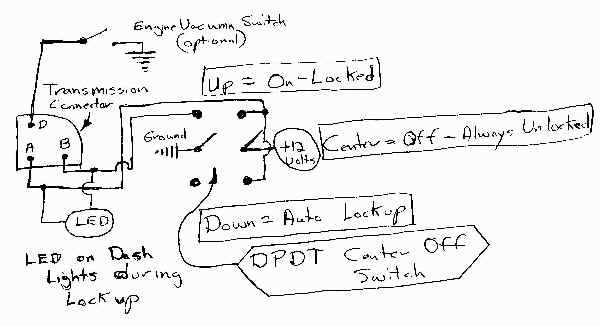 Engine Vacuum Switch
(optional)
Up = On-Locked
Transmission
Connector
D
A B
Ground
+12
Volts
Center = Off - Always Unlocked
LED
Down = Auto Lockup
LED on Dash
Lights during
Lock up
DPDT Center Off
Switch